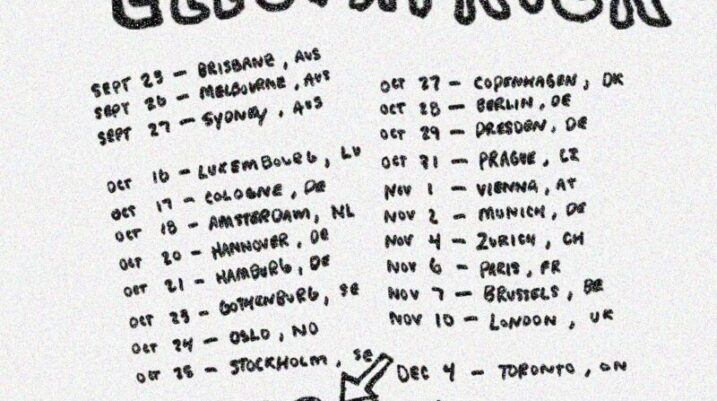 SEPT 25 - BRISBANE, AUS
SEPT 26 - MELBOURNE, AUS
SEPT 27 - SYDNEY, AUS
OCT 16 - LUXEMBOURG, LU
OCT 17 - COLOGNE, DE
OCT 18 - AMSTERDAM, NL
OCT 20 - HANNOVER, DE
OCT 21 - HAMBURG, DE
OCT 23 - GOTHENBURG, SE
OCT 24 - OSLO, NO
OCT 25 - STOCKHOLM, SE
OCT 27 - COPENHAGEN, DK
OCT 28 - BERLIN, DE
OCT 29 - DRESDEN, DE
OCT 31 - PRAGUE, CZ
NOV 1 - VIENNA, AT
NOV 2 - MUNICH, DE
NOV 4 - ZURICH, CH
NOV 6 - PARIS, FR
NOV 7 - BRUSSELS, BE
NOV 10 - LONDON, UK
DEC 4 - TORONTO, ON